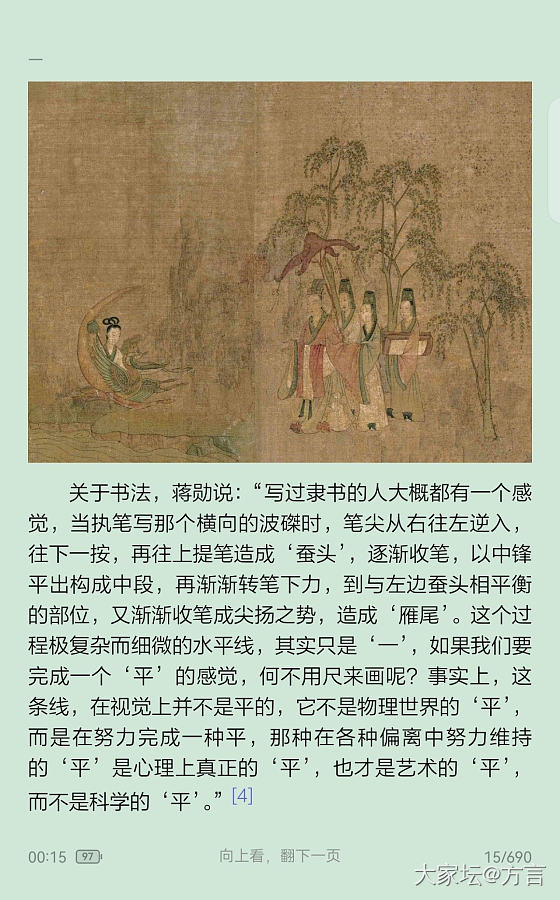 一
关于书法，蒋勋说：“写过隶书的人大概都有一个感
觉，当执笔写那个横向的波磔时，笔尖从右往左逆入，
往下一按，再往上提笔造成‘蚕头’，逐渐收笔，以中锋
平出构成中段，再渐渐转笔下力，到与左边蚕头相平衡
的部位，又渐渐收笔成尖扬之势，造成‘雁尾’。这个过
程极复杂而细微的水平线，其实只是‘一’，如果我们要
完成一个‘平’的感觉，何不用尺来画呢？事实上，这
条线，在视觉上并不是平的，它不是物理世界的‘平’，
而是在努力完成一种平，那种在各种偏离中努力维持
的‘平’是心理上真正的‘平’，也才是艺术的‘平’，
而不是科学的‘平’。” [4]
00:15 97 向上看，翻下一页 15/690
大家坛@方言